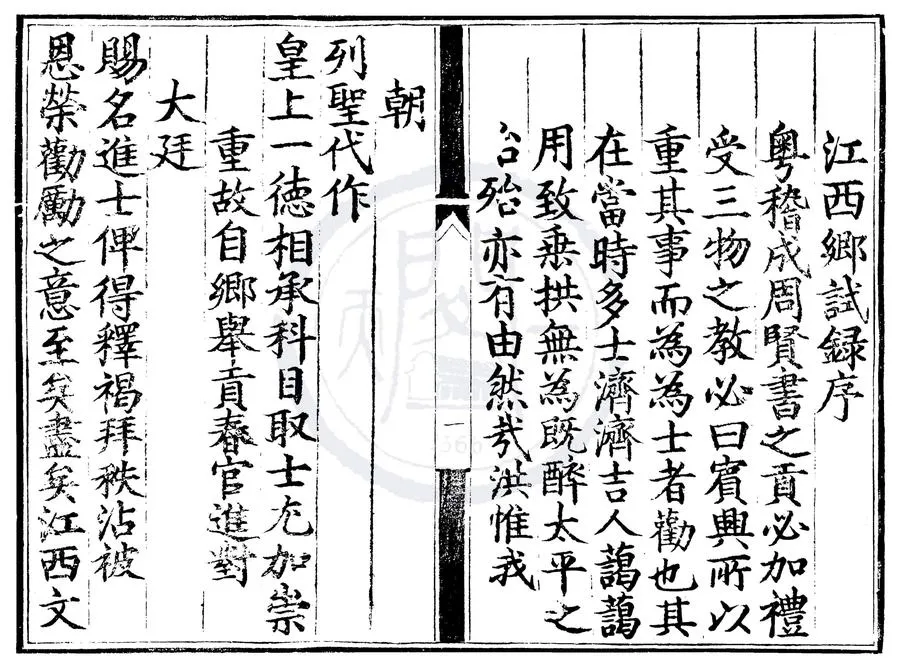 江西鄉試録序
粤稽成周賢書之貢必加禮
受三物之教必曰賓興所以
重其事而為為士者勸也其
在當時多士濟濟吉人藹藹
用致垂拱無為既醉太平之
治殆亦有由然哉洪惟我
一
朝
列聖代作
皇上一德相承科目取士尤加崇
重故自鄉舉貢春官進對
大廷
賜名進士俾得釋褐拜秩沾被
恩榮勸勵之意至矣盡矣江西文